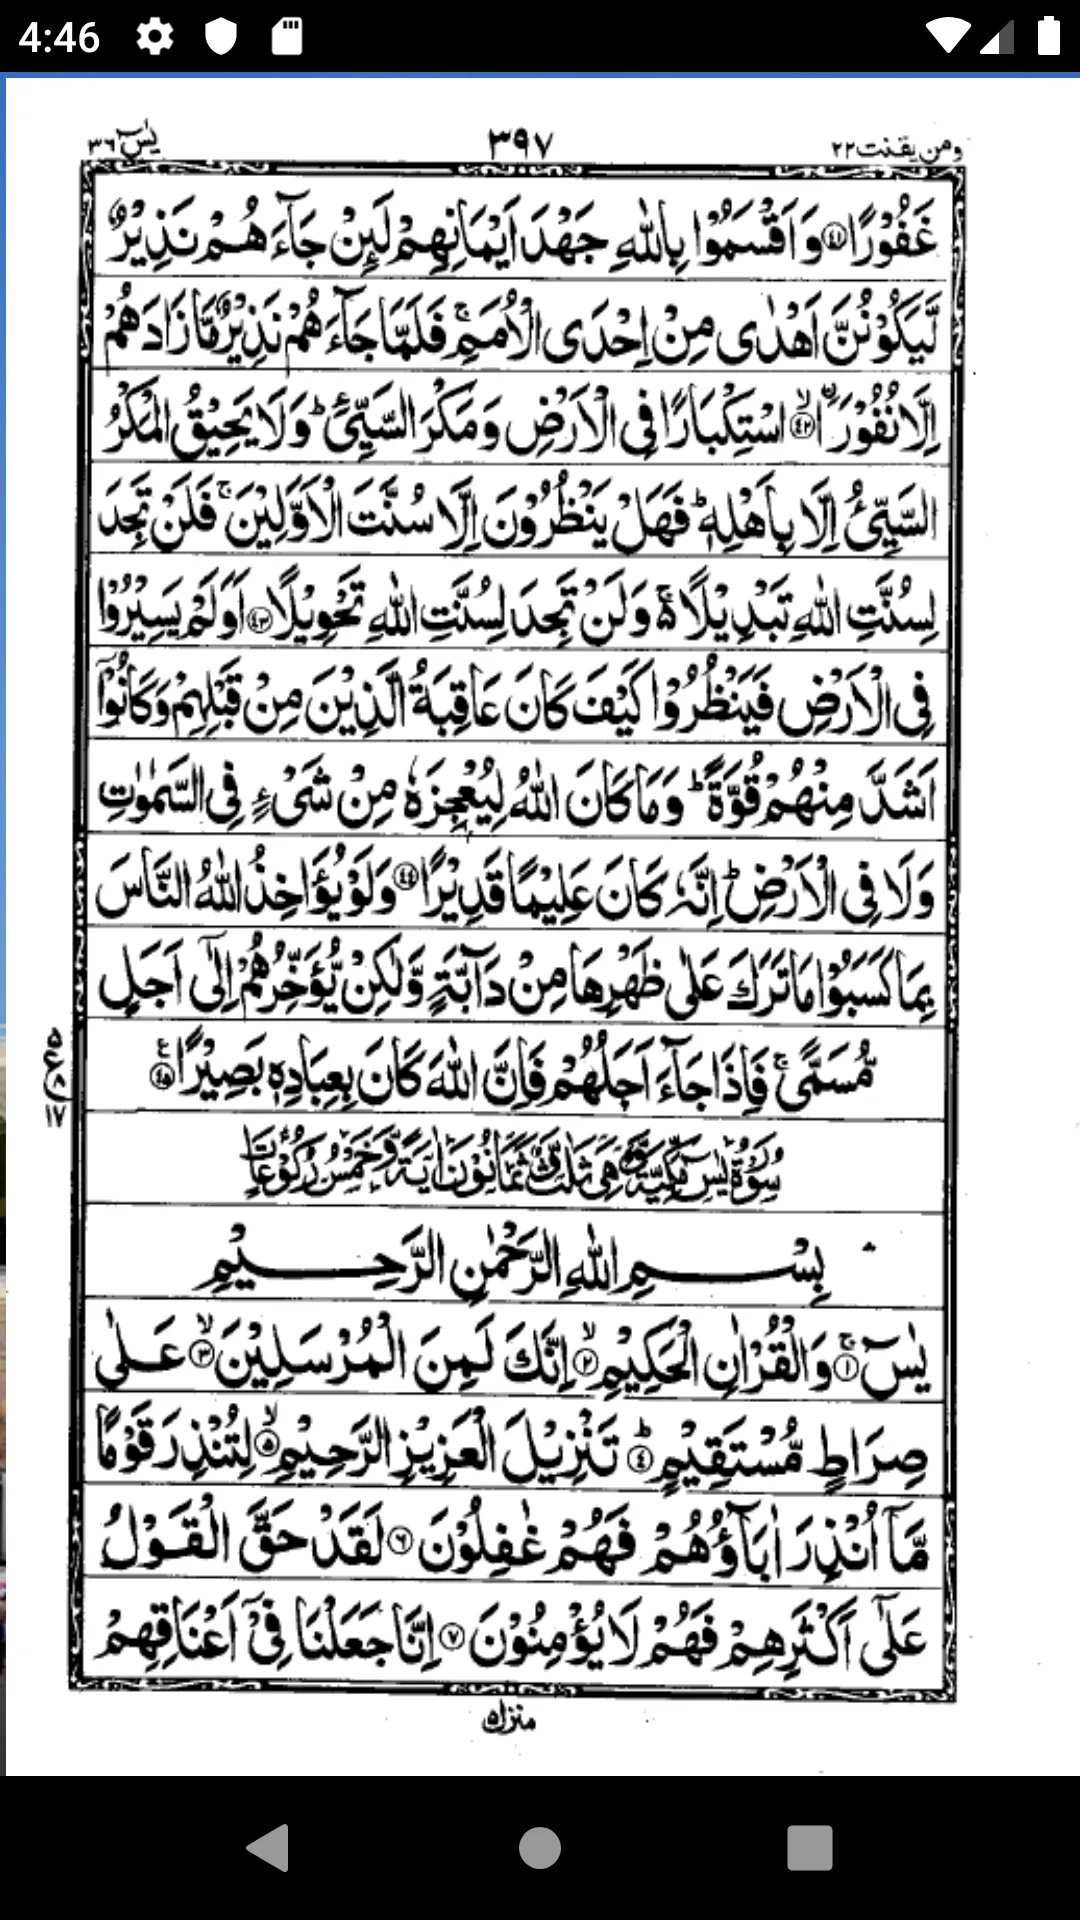 4:46
ومن یقنت ٢٢ ٣٩٧ یٰسٓ ٣٦
غَفُوْرًا ﴿٤١﴾ وَاَقْسَمُوْا بِاللّٰهِ جَهْدَ اَيْمَانِهِمْ لَئِنْ جَآءَهُمْ نَذِيْرٌ
لَّيَكُوْنُنَّ اَهْدٰى مِنْ اِحْدَى الْاُمَمِ ۚ فَلَمَّا جَآءَهُمْ نَذِيْرٌ مَّا زَادَهُمْ
اِلَّا نُفُوْرَا ۙ﴿٤٢﴾ اسْتِكْبَارًا فِى الْاَرْضِ وَمَكْرَ السَّيِّئِ ؕ وَلَا يَحِيْقُ الْمَكْرُ
السَّيِّئُ اِلَّا بِاَهْلِهٖ ؕ فَهَلْ يَنْظُرُوْنَ اِلَّا سُنَّتَ الْاَوَّلِيْنَ ۚ فَلَنْ تَجِدَ
لِسُنَّتِ اللّٰهِ تَبْدِيْلًا ۬ۚ وَلَنْ تَجِدَ لِسُنَّتِ اللّٰهِ تَحْوِيْلًا ﴿٤٣﴾ اَوَلَمْ يَسِيْرُوْا
فِى الْاَرْضِ فَيَنْظُرُوْا كَيْفَ كَانَ عَاقِبَةُ الَّذِيْنَ مِنْ قَبْلِهِمْ وَكَانُوْۤا
اَشَدَّ مِنْهُمْ قُوَّةً ؕ وَمَا كَانَ اللّٰهُ لِيُعْجِزَهٗ مِنْ شَىْءٍ فِى السَّمٰوٰتِ
وَلَا فِى الْاَرْضِ ؕ اِنَّهٗ كَانَ عَلِيْمًا قَدِيْرًا ﴿٤٤﴾ وَلَوْ يُؤَاخِذُ اللّٰهُ النَّاسَ
بِمَا كَسَبُوْا مَا تَرَكَ عَلٰى ظَهْرِهَا مِنْ دَآبَّةٍ وَّلٰكِنْ يُّؤَخِّرُهُمْ اِلٰٓى اَجَلٍ
مُّسَمًّى ۚ فَاِذَا جَآءَ اَجَلُهُمْ فَاِنَّ اللّٰهَ كَانَ بِعِبَادِهٖ بَصِيْرًا ﴿٤٥﴾ ع
٥ ع ٨ ١٧
سُوْرَةُ يٰسٓ مَكِّيَّةٌ وَّهِىَ ثَلٰثٌ وَّثَمَانُوْنَ اٰيَةً وَّخَمْسُ رُكُوْعَاتٍ
بِسْمِ اللّٰهِ الرَّحْمٰنِ الرَّحِيْمِ
يٰسٓ ۚ﴿١﴾ وَالْقُرْاٰنِ الْحَكِيْمِ ۙ﴿٢﴾ اِنَّكَ لَمِنَ الْمُرْسَلِيْنَ ۙ﴿٣﴾ عَلٰى
صِرَاطٍ مُّسْتَقِيْمٍ ؕ﴿٤﴾ تَنْزِيْلَ الْعَزِيْزِ الرَّحِيْمِ ۙ﴿٥﴾ لِتُنْذِرَ قَوْمًا
مَّاۤ اُنْذِرَ اٰبَآؤُهُمْ فَهُمْ غٰفِلُوْنَ ﴿٦﴾ لَقَدْ حَقَّ الْقَوْلُ
عَلٰٓى اَكْثَرِهِمْ فَهُمْ لَا يُؤْمِنُوْنَ ﴿٧﴾ اِنَّا جَعَلْنَا فِىْۤ اَعْنَاقِهِمْ
منزل ٥